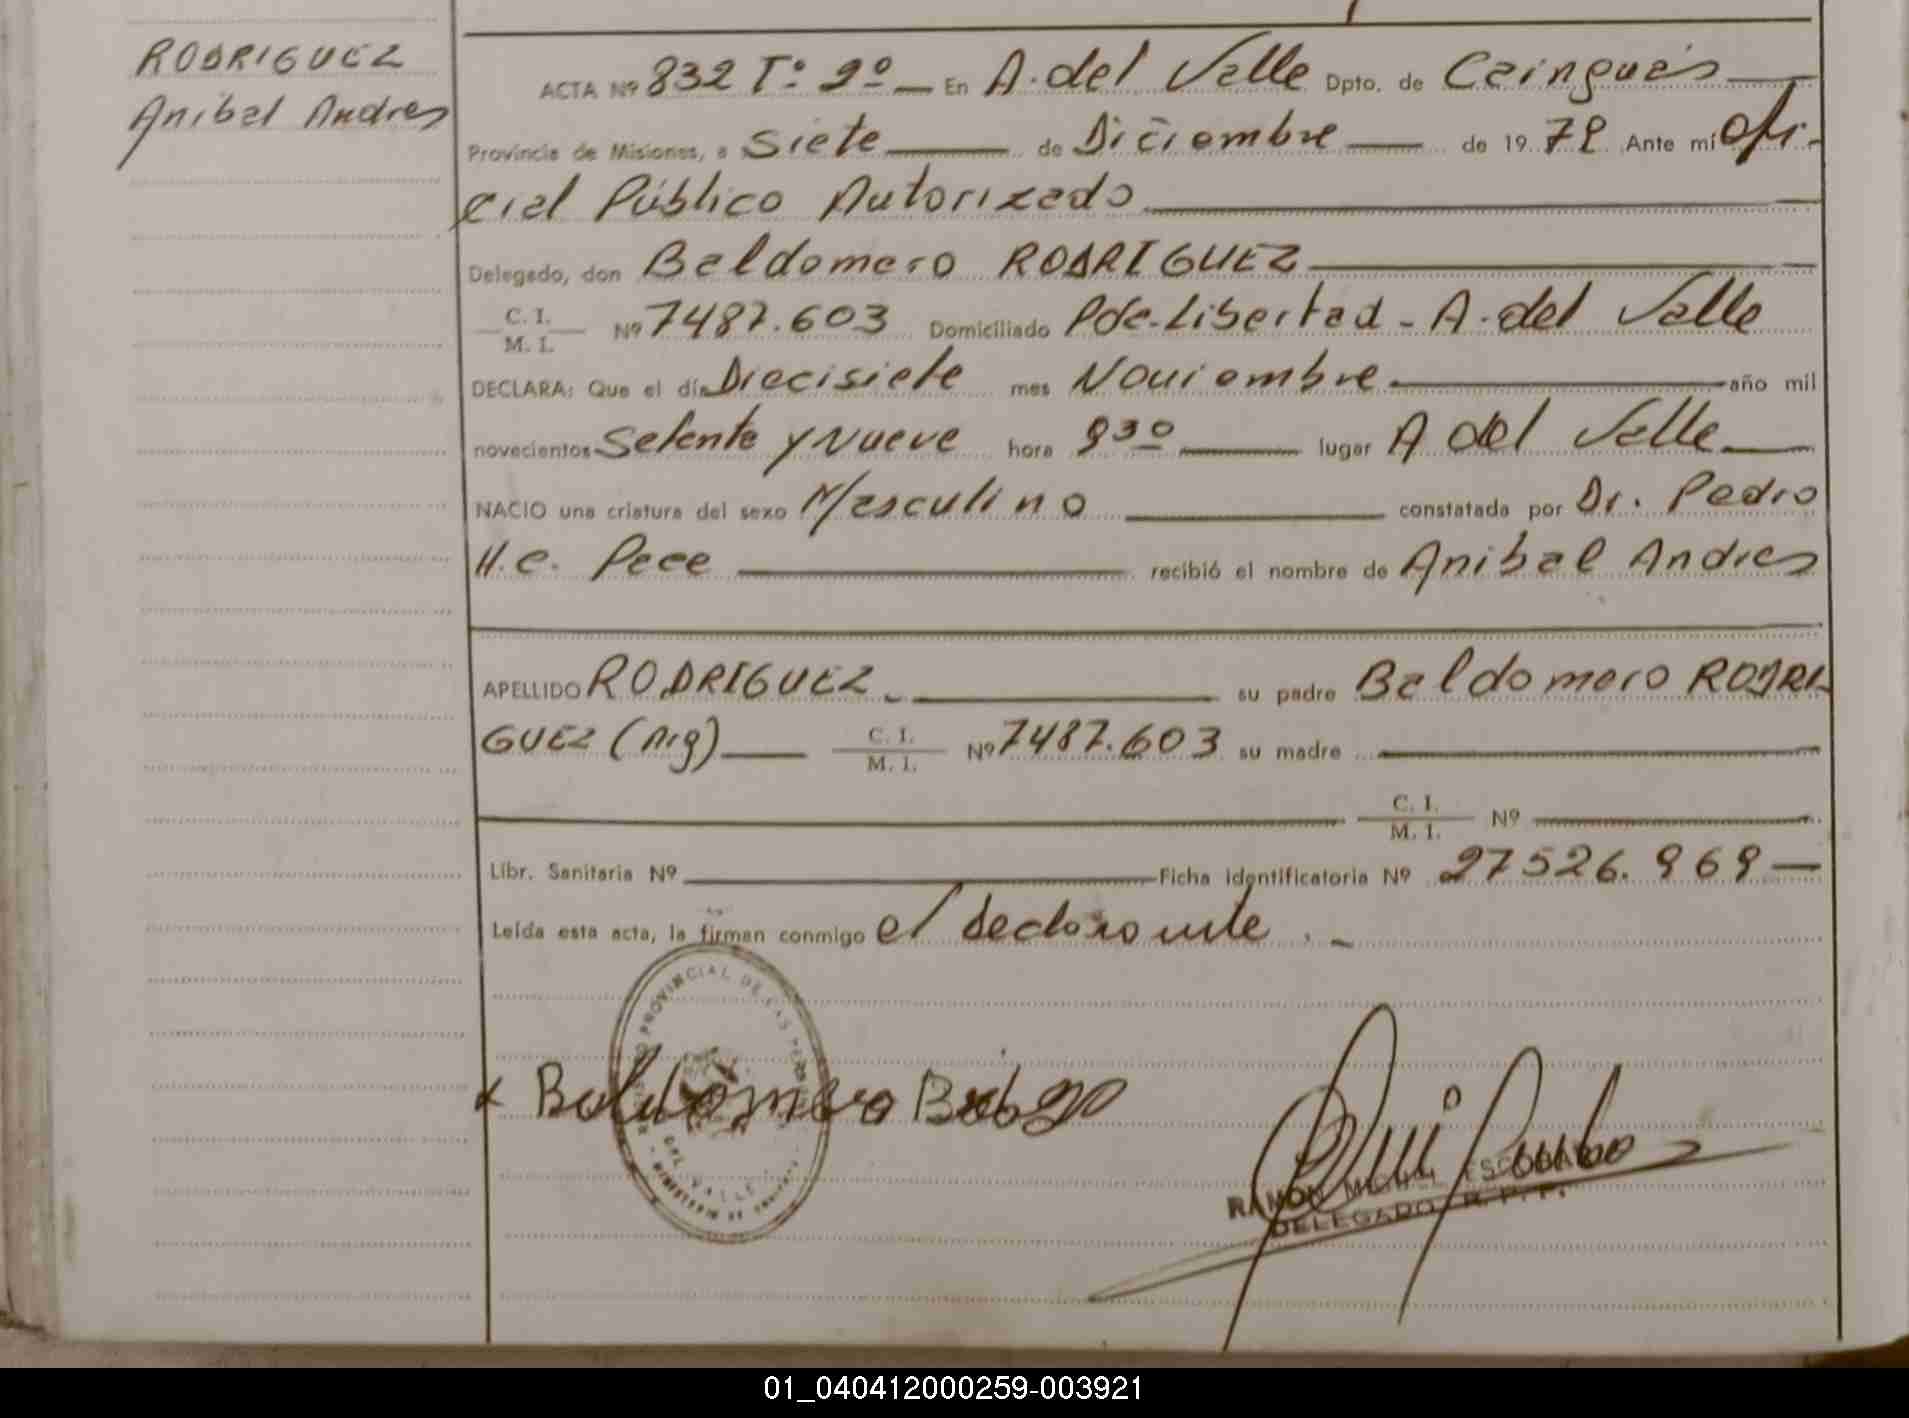 RODRIGUEZ
Anibal Andres
ACTA Nº 832 Tº 2º En A. del Valle Dpto. de Cainguas
Provincia de Misiones, a siete de Diciembre de 1979 Ante mí Ofi-
cial Público Autorizado
Delegado, don Baldomero RODRIGUEZ
C. I.
M. I. Nº 7487.603 Domiciliado Pde-Libertad - A. del Valle
DECLARA: Que el día Diecisiete mes Noviembre año mil
novecientos Setenta y Nueve hora 930 lugar A del Valle
NACIO una criatura del sexo Masculino constatada por Dr. Pedro
H. C. recibió el nombre de Anibal Andres
APELLIDO RODRIGUEZ su padre Baldomero RODRI
GUEZ (Arg) C. I.
M. I. Nº 7487.603 su madre
C. I.
M. I. Nº
Libr. Sanitaria Nº Ficha identificatoria Nº 27526.969
Leída esta acta, la firman conmigo el declarante.
PROVINCIAL DE LAS PERSONAS
DEL VALLE
x Baldomero
RAMON MIGUEL ESCOBAR
DELEGADO R. P. P.
01_040412000259-003921